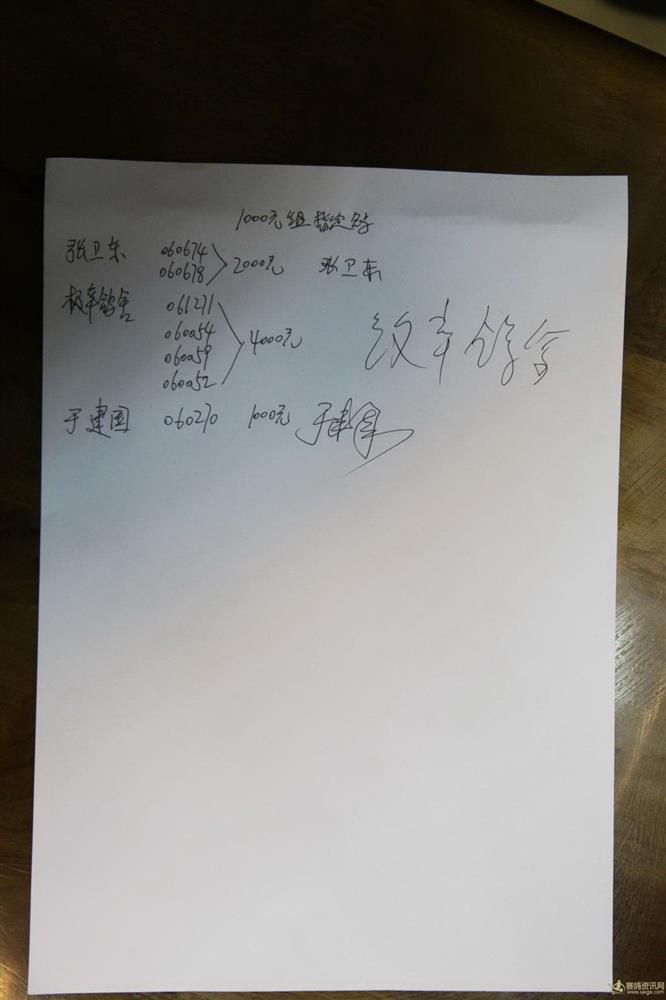 1000元组指定鸽
张卫东 060674 2000元 张卫东
060678
鸽舍 061271 4000元 鸽舍
060a54
060a59
060a52
于建国 060270 1000元 于建国
赛鸽资讯网
www.saige.com